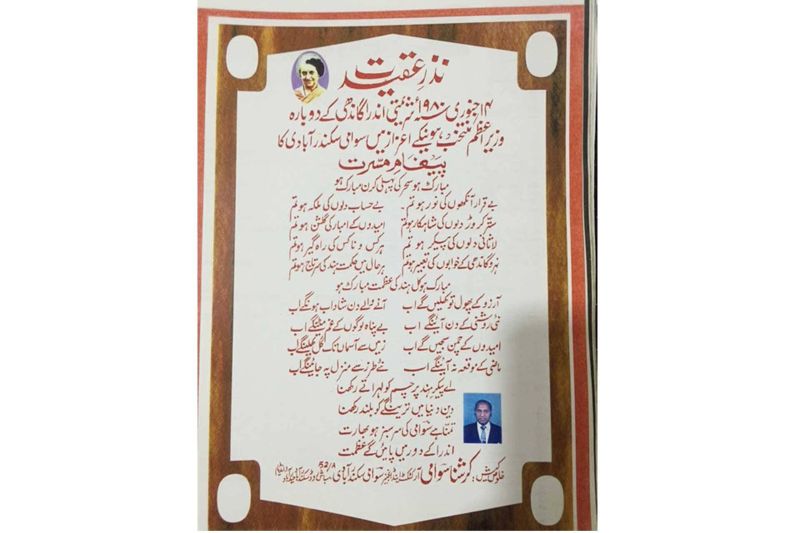 نذرِ عقیدت
۱۴ جنوری ۱۹۸۰ء شریمتی اندرا گاندھی کے دوبارہ
وزیر اعظم منتخب ہونیکے اعزاز میں سوامی سکندرآبادی کا
پیغامِ مسرت
مبارک ہو سحر کی پہلی کرن مبارک ہو
بے قرار آنکھوں کی نور ہو تم ۔ بے حساب دلوں کی ملکہ ہو تم
ستر کروڑ دلوں کی شاہکار ہو تم امیدوں کے امبار کی گلشن ہو تم
لاثانی دلوں کی پیکر ہو تم ہر کس و ناکس کی راہ گیر ہو تم
نہرو گاندھی کے خوابوں کی تعبیر ہو تم ہر حال میں حکمت ہند کی سرتاج ہو تم
مبارک ہو کل ہند کی عظمت مبارک ہو
آرزو کے پھول تو کھلیں گے اب آنے والے دن شاداب ہونگے اب
نئی روشنی کے دن آئینگے اب بے پناہ لوگوں کے غم مٹینگے اب
امیدوں کے چمن سجیں گے اب زمیں سے آسماں تک گل کھلینگے اب
ماضی کے موقعہ نہ آئینگے اب نئے طرز سے منزل پہ جائینگے اب
اے پیکرِ ہند پرچم کو لہراتے رکھنا
دین دنیا میں ترینگے کو بلند رکھنا
تمنا ہے سوامی کی سرسبز ہو بھارت
اندرا کے دور میں پائیں گے عظمت
کرشنا سوامی آرٹسٹ سوامی سکندآبادی